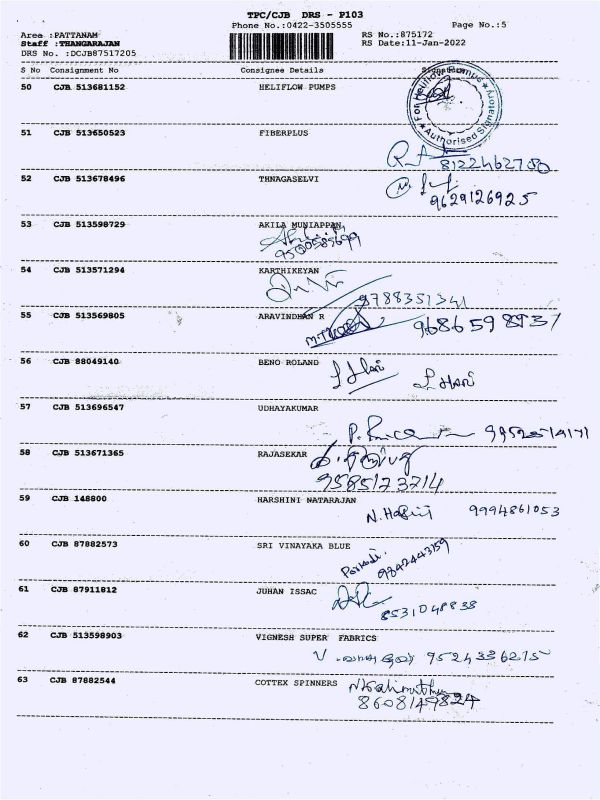 TPC/CJB DRS - P103
Phone No.:0422-3505555 Page No.:5
Area :PATTANAM RS No.:875172
Staff :THANGARAJAN RS Date:11-Jan-2022
DRS No. :DCJB87517205
S No Consignment No Consignee Details Signature
50 CJB 513681152 HELIFLOW PUMPS
For Heliflow Pumps
Authorised Signatory
51 CJB 513650523 FIBERPLUS
8122462780
52 CJB 513678496 THNAGASELVI
9629126925
53 CJB 513598729 AKILA MUNIAPPAN
9500585699
54 CJB 513571294 KARTHIKEYAN
9788351341
55 CJB 513569805 ARAVINDHAN R
9686598937
56 CJB 88049140 BENO ROLAND
L Hari
57 CJB 513696547 UDHAYAKUMAR
58 CJB 513671365 RAJASEKAR
9585173714
59 CJB 148800 HARSHINI NATARAJAN
9994861053
60 CJB 87882573 SRI VINAYAKA BLUE
9842443159
61 CJB 87911812 JUHAN ISSAC
8531048838
62 CJB 513598903 VIGNESH SUPER FABRICS
9524336275
63 CJB 87882544 COTTEX SPINNERS
8608149824